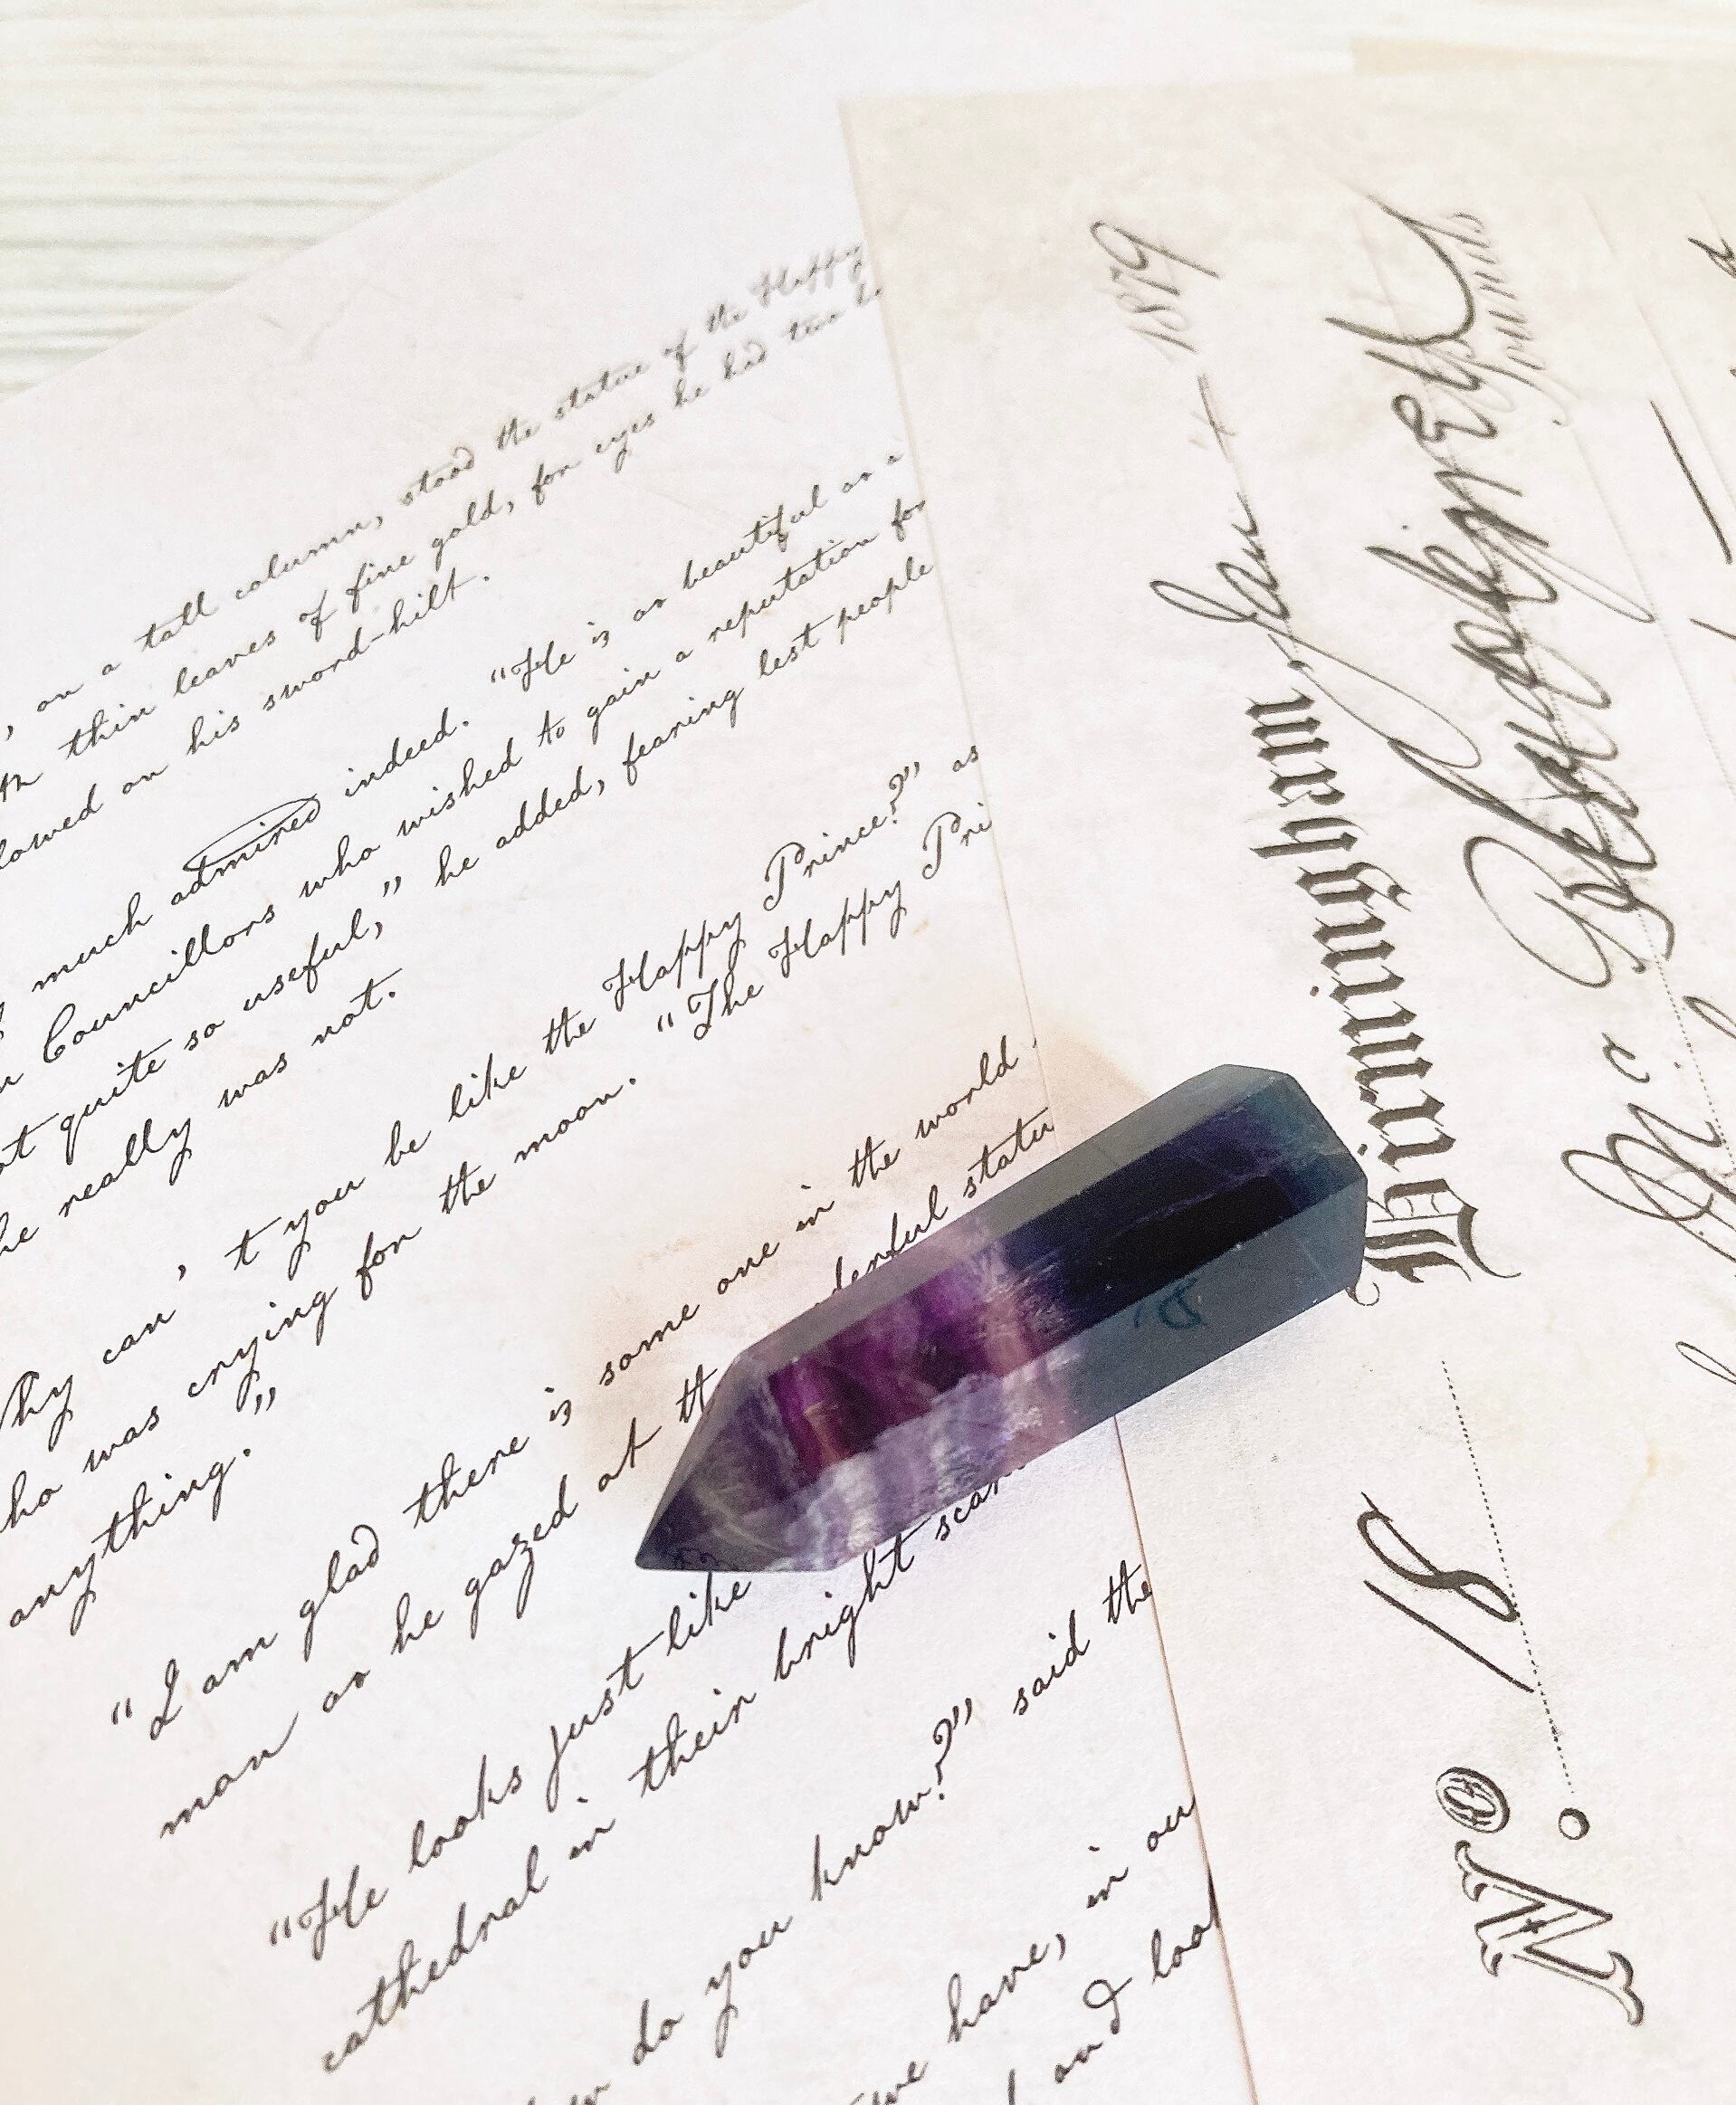 , on a tall column, stood the statue of the Happy
thin leaves of fine gold, for eyes he had two
lowed on his sword-hilt.
much admired indeed. "He is as beautiful as a
n Councillors who wished to gain a reputation for
t quite so useful," he added, fearing lest people
he really was not.
hy can,t you be like the Happy Prince?" as
ho was crying for the moon. "The Happy Pri
anything."
"I am glad there is some one in the world
man as he gazed at th derful statu
"He looks just like
cathedral in their bright scar
w do you know?" said the
we have, in ou
and loo
1879
Birmingham, Jan 4
Pounds
No. 18